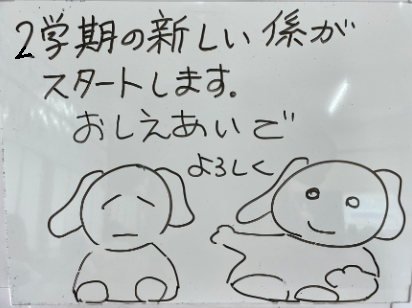 2学期の新しい係が
スタートします。
おしえあいで
よろしく